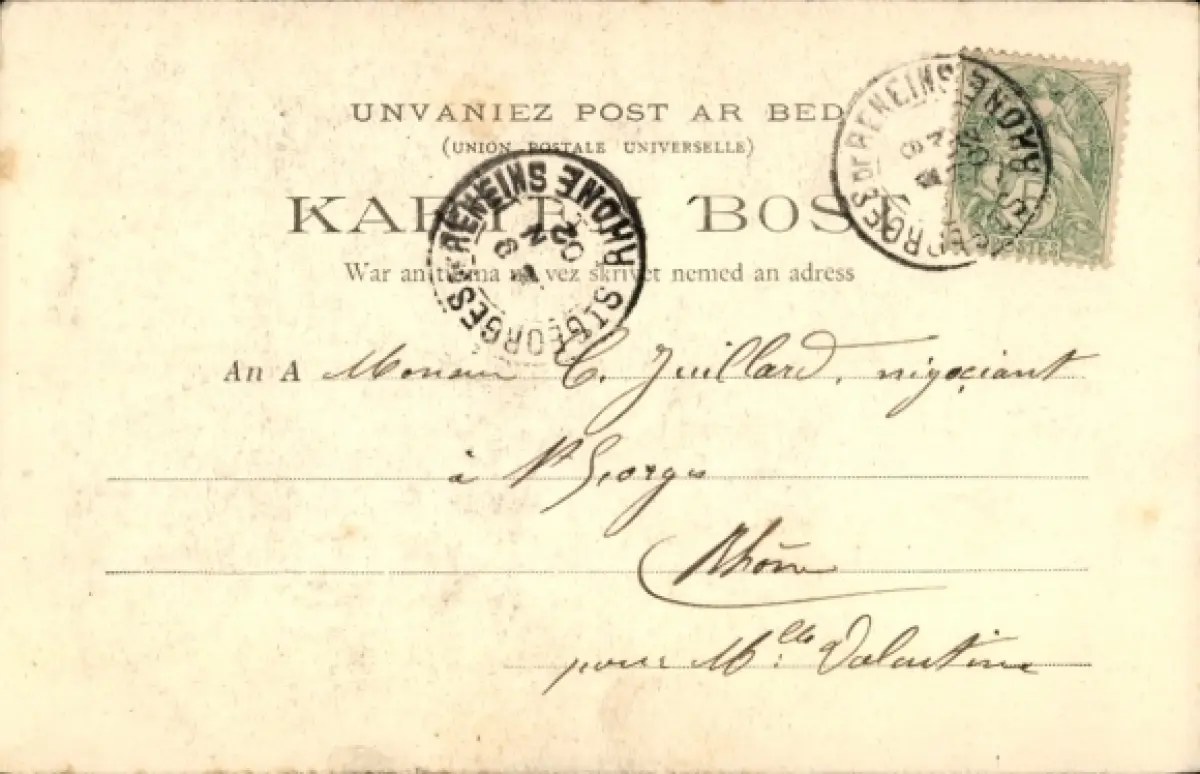 UNVANIEZ POST AR BED
(UNION POSTALE UNIVERSELLE)
KARTEN BOST
War an tu-ma na vez skrivet nemed an adress
ST GEORGES DE RENEINS RHONE
ST GEORGES DE RENEINS RHONE
POSTES
An A Monsieur C. Juillard, négociant
à St Georges
Rhône
pour Mlle Valentine